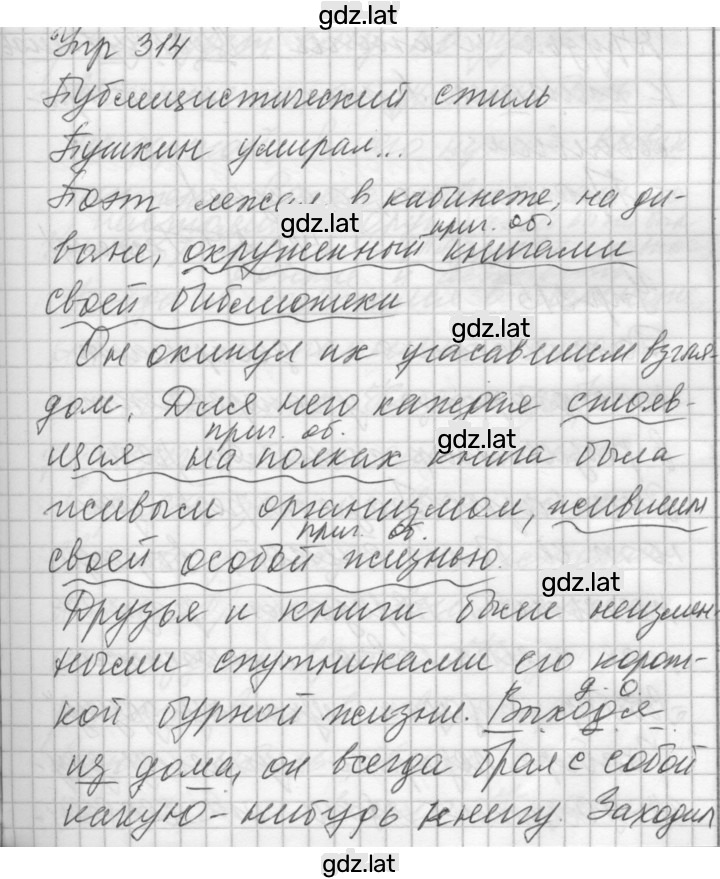 gdz.lat
Упр 314
Публицистический стиль
Пушкин умирал...
Поэт лежал в кабинете, на ди-
gdz.lat
прич. об.
ване, окруженный книгами
своей библиотеки
gdz.lat
Он окинул их угасавшим взгля-
дом. Для него каждая стояв-
прич. об.
gdz.lat
щая на полках книга была
живым организмом, жившим
прич. об.
своей особой жизнью.
gdz.lat
Друзья и книги были неизмен
ными спутниками его корот-
д. о.
кой бурной жизни. Выходя
из дома, он всегда брал с собой
какую-нибудь книгу. Заходил
gdz.lat